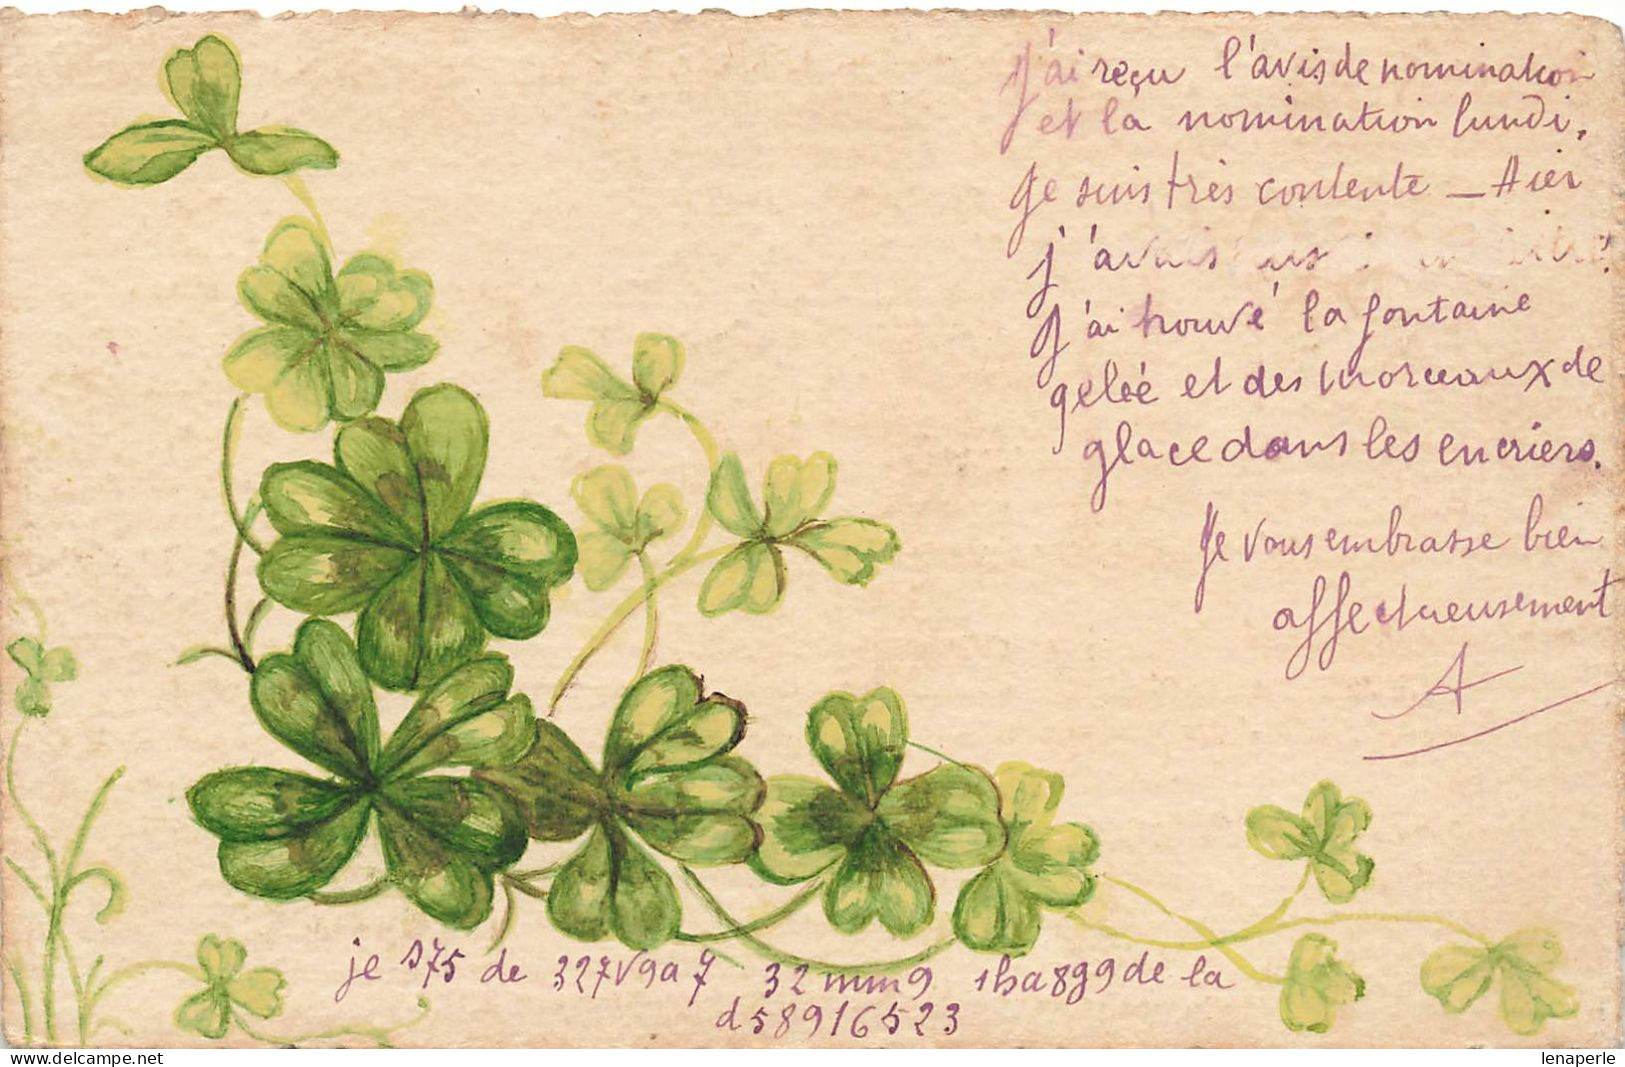 J'ai reçu l'avis de nomination
et la nomination lundi.
Je suis très contente _ Hier
j'avais
J'ai trouvé la fontaine
gelée et des morceaux de
glace dans les encriers.
Je vous embrasse bien
affectueusement
A
je 175 de 327v9a7 32mm9 1ha8g9 de la
d58916523
delcampe.net
lenaperle